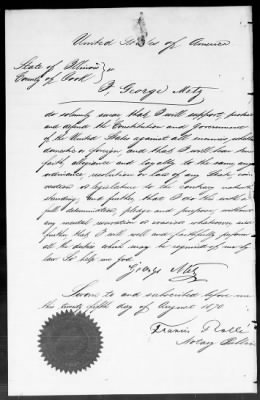 United States of America
State of Illinois } ss
County of Cook }
I, George Metz
do solemnly swear that I will support, protect
and defend the Constitution and Government
of the United States against all enemies, whether
domestic or foreign, and that I will bear true
faith, allegiance and loyalty to the same, any
ordinance, resolution or law of any State, con-
vention or legislature to the contrary notwith
standing; and further, that I do this with a
full determination, pledge and purpose, without
any mental reservation or evasion whatsoever, and
further that I will well and faithfully perform
all the duties which may be required of me by
law. So help me God
George Metz
Sworn to and subscribed before me
this twenty fifth day of August 1870
Francis
Notary Public